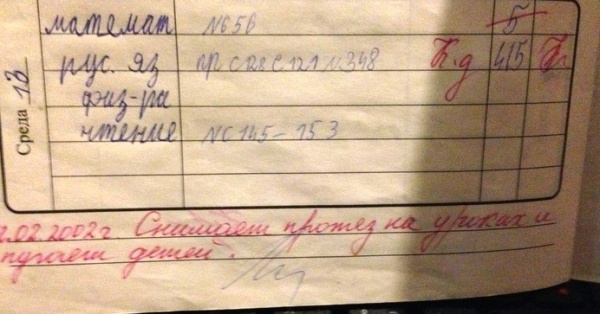 математ №658 5
Среда 13
рус. яз пр с 128 с 121 №348 К.д 4/5
физ-ра
чтение №с 145-153
.02 2002г Снимает протез на уроках и
пугает детей.